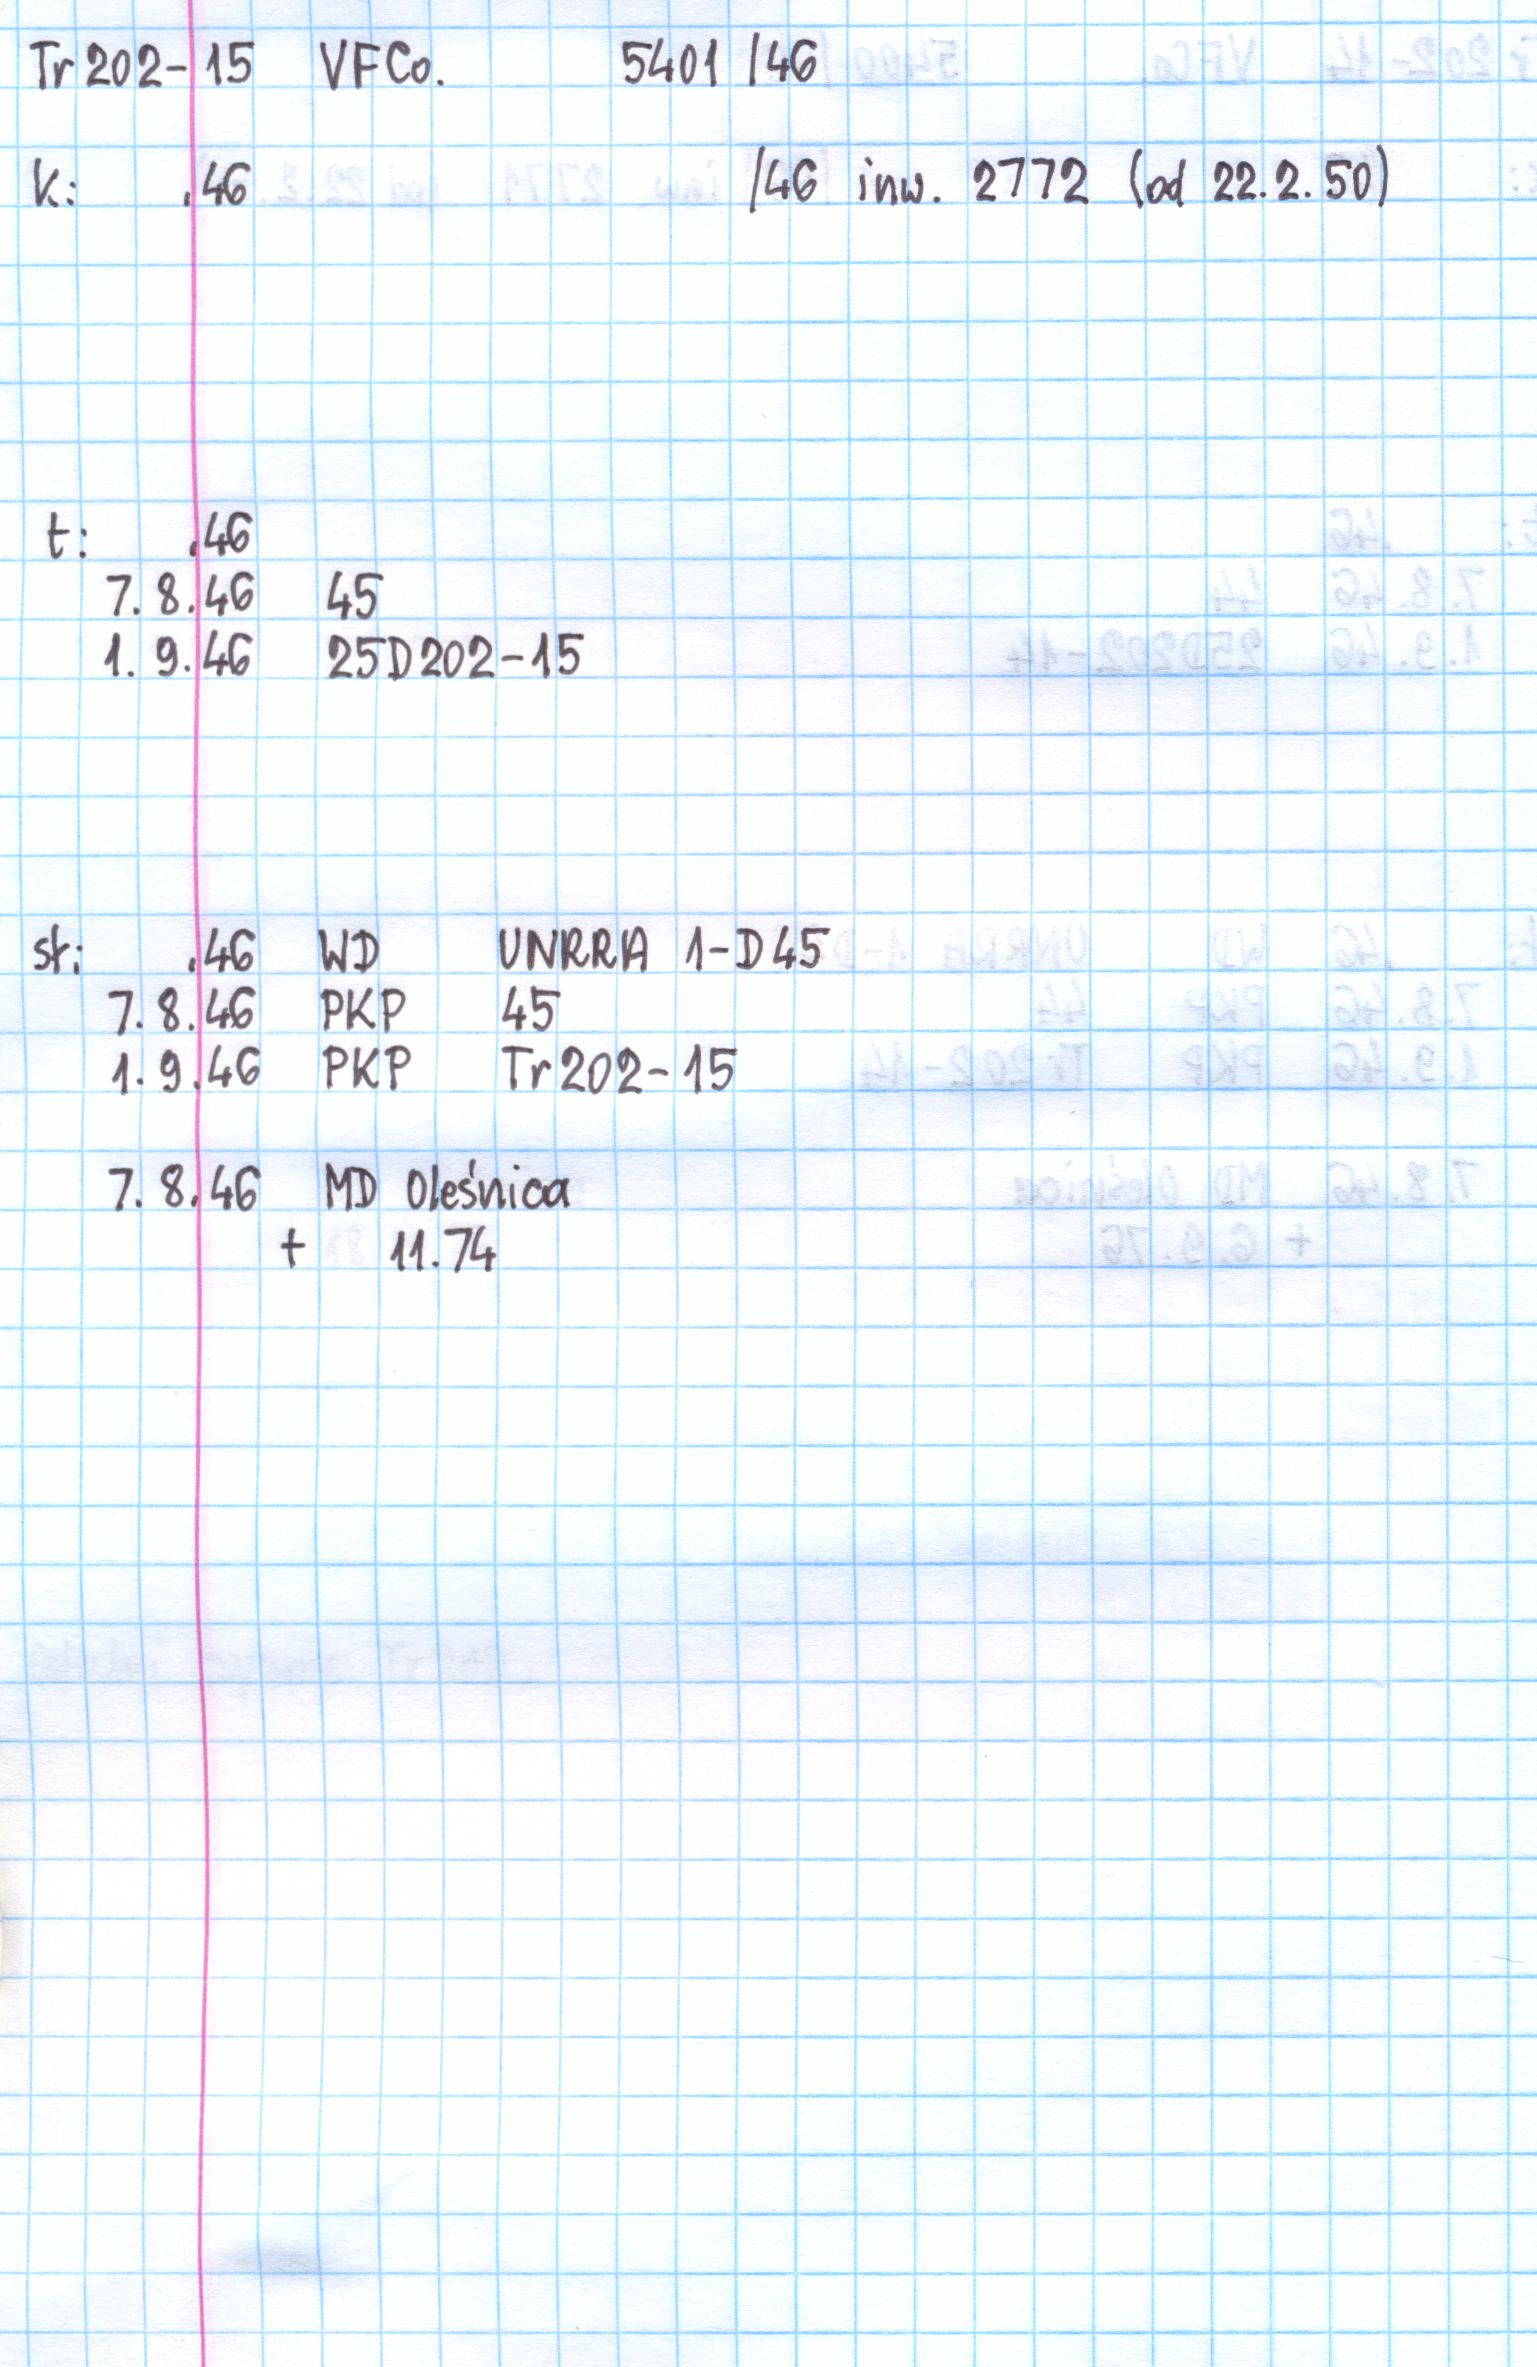 Tr202-15 VFCo. 5401 /46
k: .46 /46 inw. 2772 (od 22.2.50)
t: .46
7.8.46 45
1.9.46 25D202-15
st: .46 WD UNRRA 1-D45
7.8.46 PKP 45
1.9.46 PKP Tr202-15
7.8.46 MD Oleśnica
+ 11.74